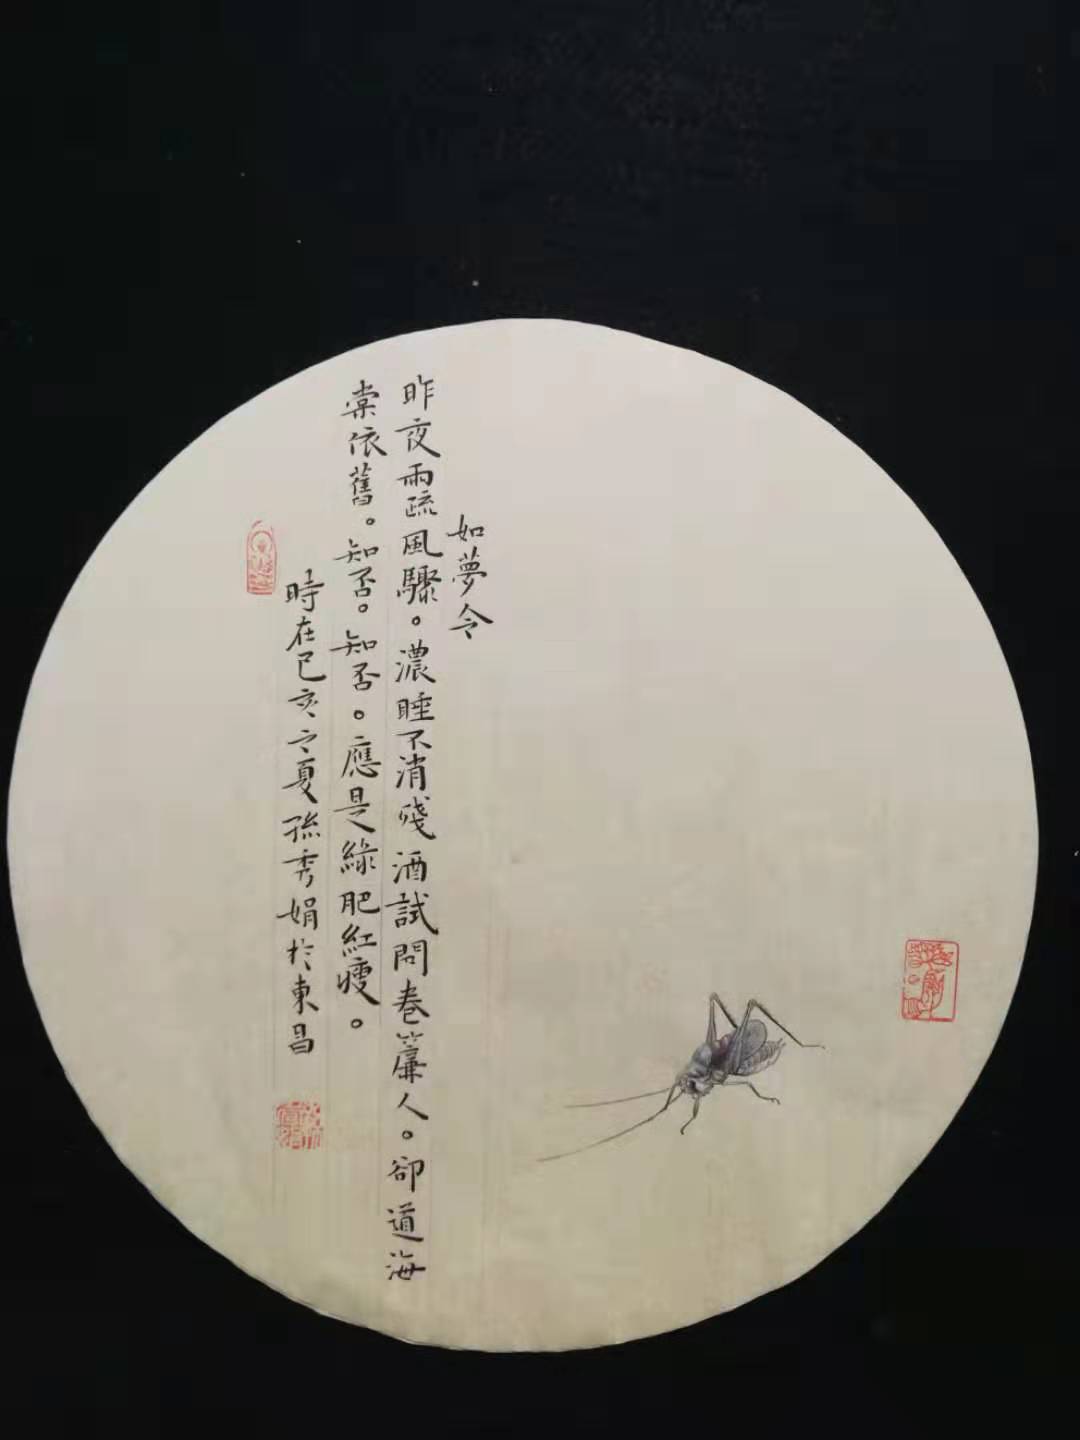 如夢令
昨夜雨疏風驟。濃睡不消殘酒試問卷簾人。卻道海
棠依舊。知否。知否。應是綠肥紅瘦。
時在己亥之夏孫秀娟於東昌